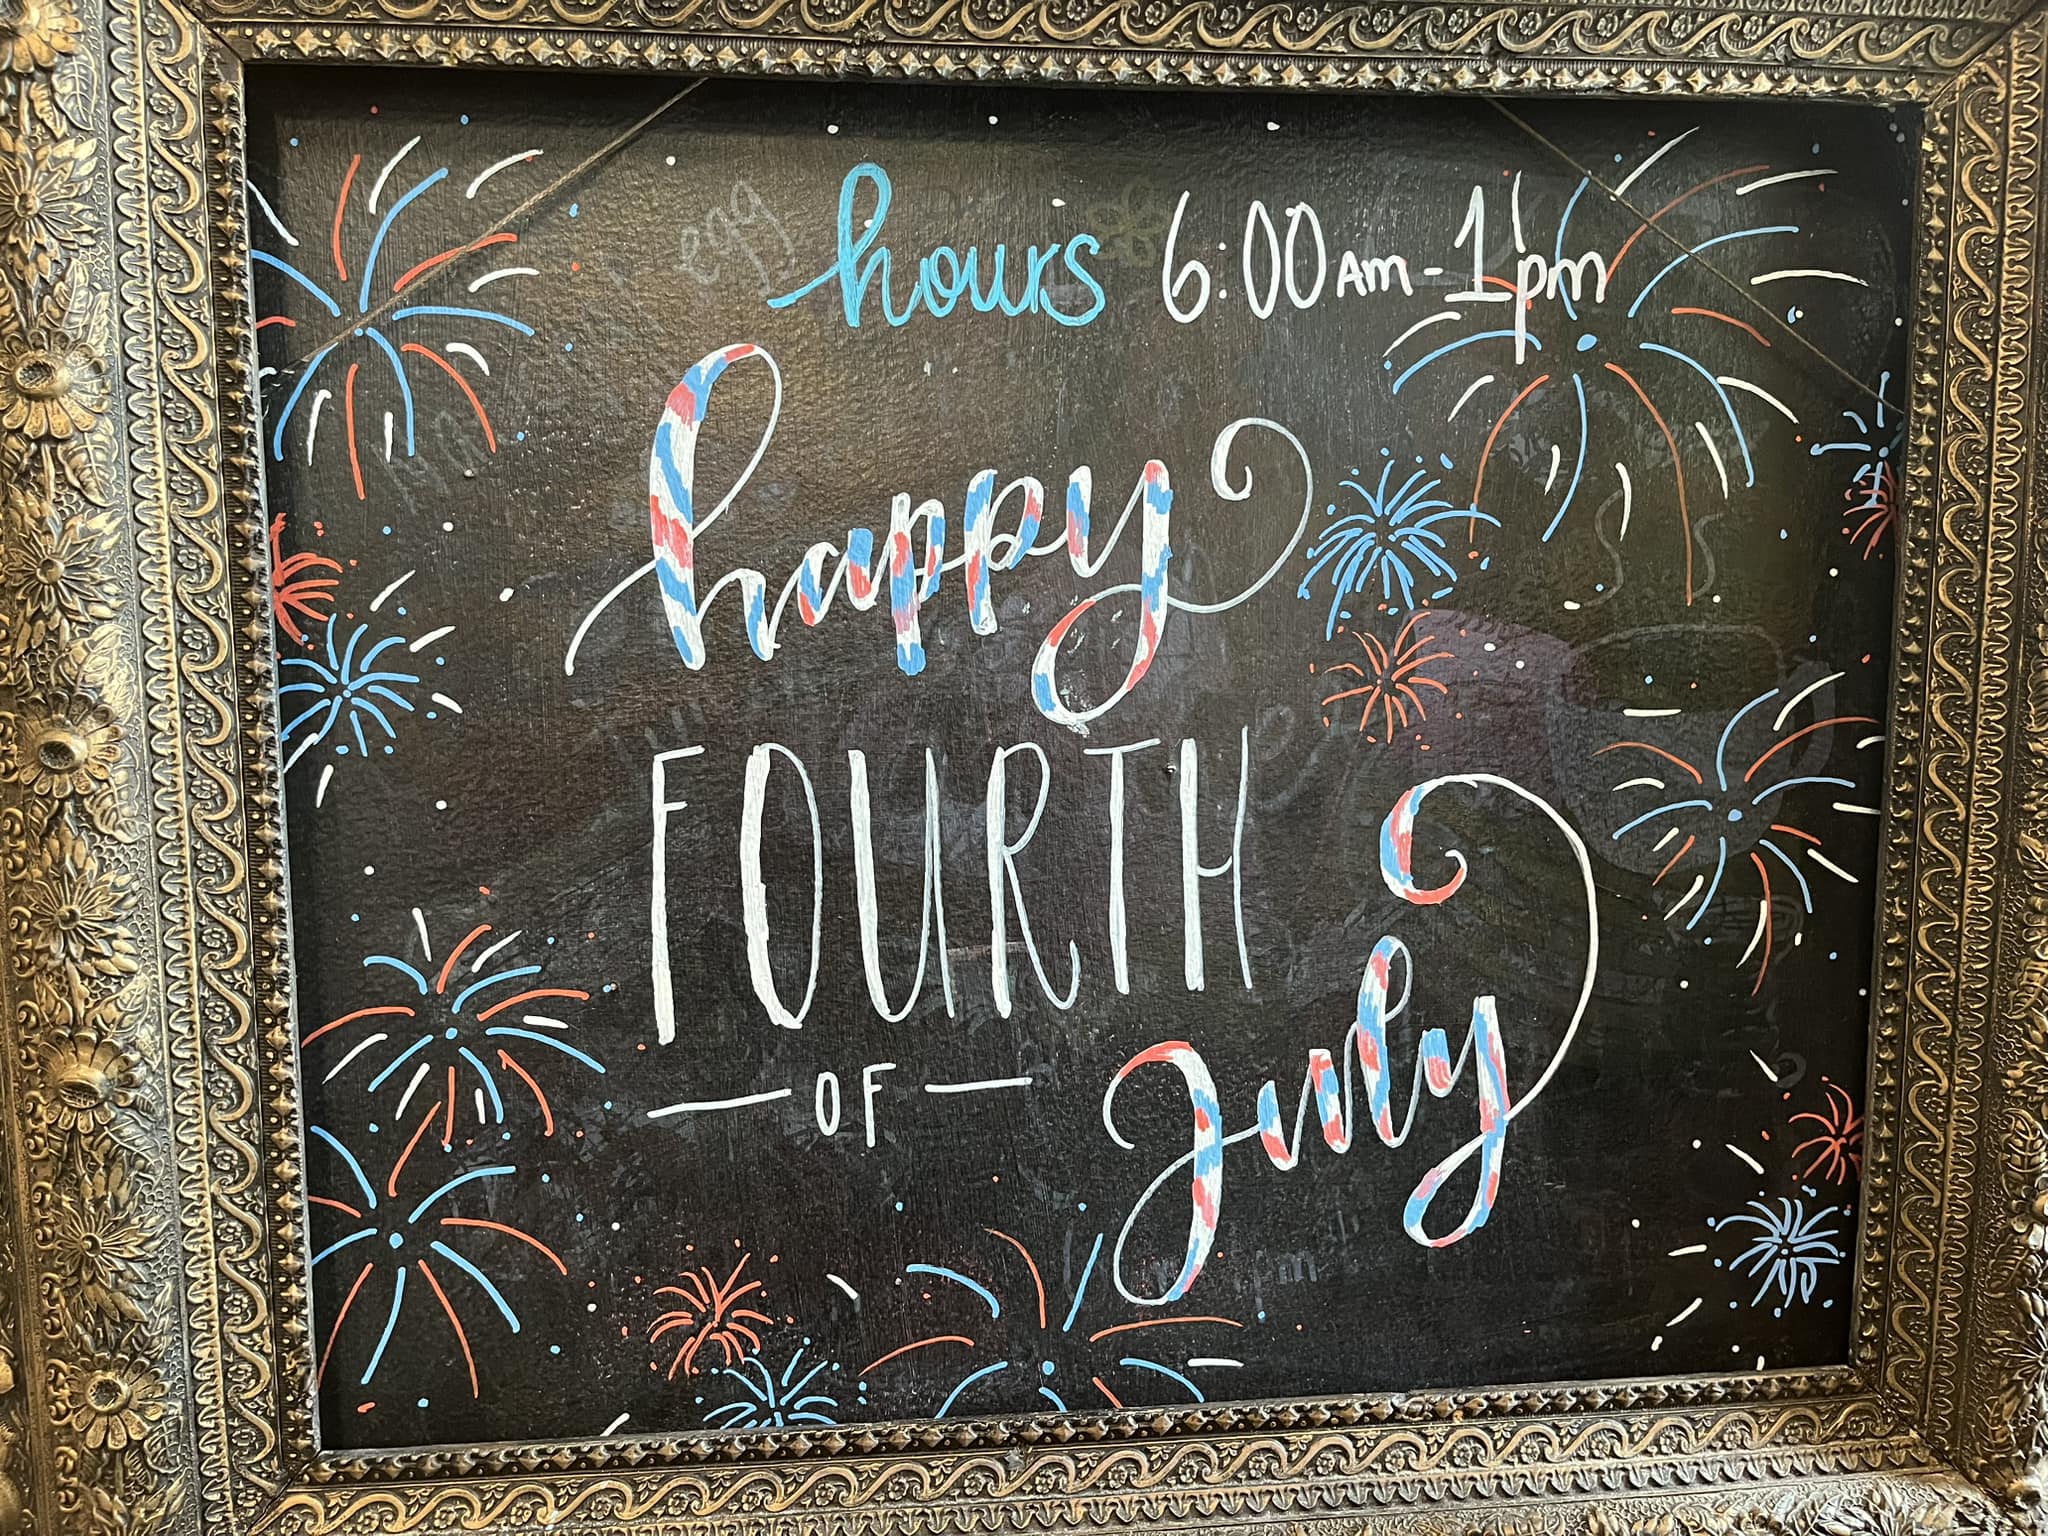 hours 6:00Am - 1pm
happy
FOURTH
- OF -
July
egg